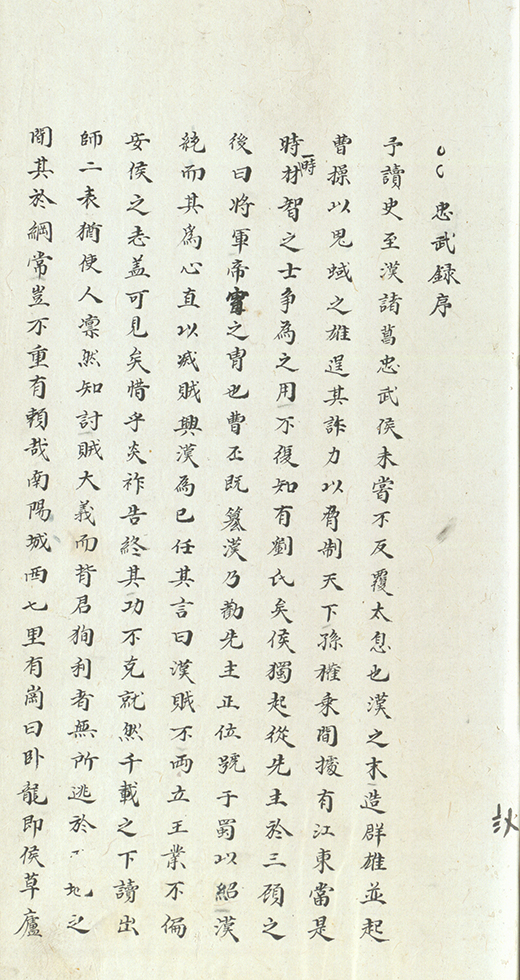 忠武録序
予讀史至漢諸葛忠武侯未嘗不反覆太息也漢之末造群雄並起
曹操以鬼蜮之雄逞其詐力以脅制天下孫權乗間據有江東當是
時一時材智之士爭為之用不復知有劉氏矣侯獨起從先主於三顧之
後曰将軍帝室之冑也曹丕既簒漢乃勸先主正位號于蜀以紹漢
統而其為心直以滅賊興漢為已任其言曰漢賊不両立王業不偏
安侯之志盖可見矣惜乎炎祚告終其功不克就然千載之下讀出
師二表猶使人凛然知討賊大義而背君狥利者無所逃於地之
間其於綱常豈不重有頼哉南陽城西七里有崗曰卧龍即侯草廬